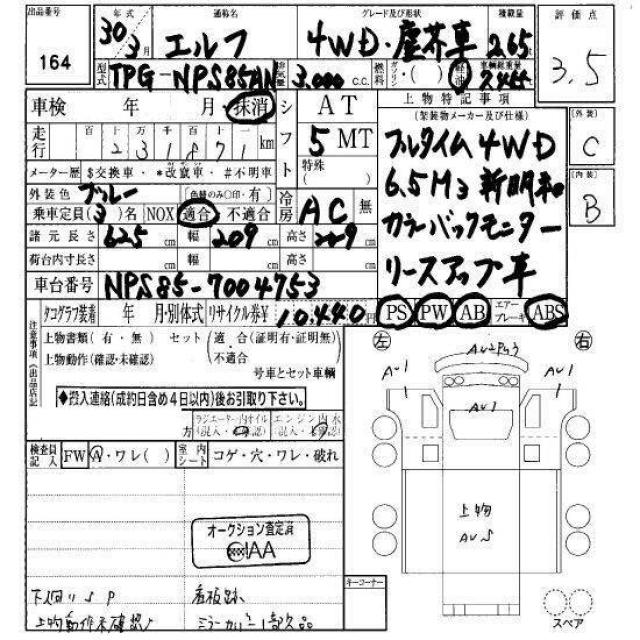 出品番号 164
年式 30年 3月
通称名 エルフ
グレード及び形状 4WD・塵芥車
積載量 2.65
車輌総重量
評価点 3.5
型式 TPG-NPS85AN
排気量 3.000 C.C.
燃料 ガソリン・( )軽油
車検 年 月・抹消
シフト AT 5 MT
特殊 ( )
上物特記事項
(架装物メーカー及び仕様)
フルタイム4WD
6.5M3 新明和
カラーバックモニター
リースアップ車
[外装] C
[内装] B
走行 百 十 万 千 百 十 一
2 3 1 8 7 1 km
メーター歴 $交換車・*改竄車・#不明車
外装色 ブルー [色替のみ〇印・有]
冷房 AC 無
乗車定員(3)名 NOX 適合 不適合
諸元長さ 625 cm 幅 209 cm 高さ cm
荷台内寸長さ cm 幅 cm 高さ cm
車台番号 NPS85-7004753
PS PW AB エアーブレーキ ABS
タコグラフ装着 年 月・別体式 リサイクル券¥ 10,440円
注意事項(出品店記
上物書類(有・無) セット(適・合(証明有・証明無)
上物動作(確認・未確認) ・不適合
号車とセット車輌
◆搬入連絡(成約日含め4日以内)後お引取り下さい。
左 右
AU1 AU1
AU1
ラジエーター内オイル エンジン内水
方
検査員記入 FW A・ワレ( ) 室内シート コゲ・穴・ワレ・破れ
オークション査定済
IAA
上物
AUS
下廻りSP 看板跡
上物動作未確認
キーコーナー
スペア